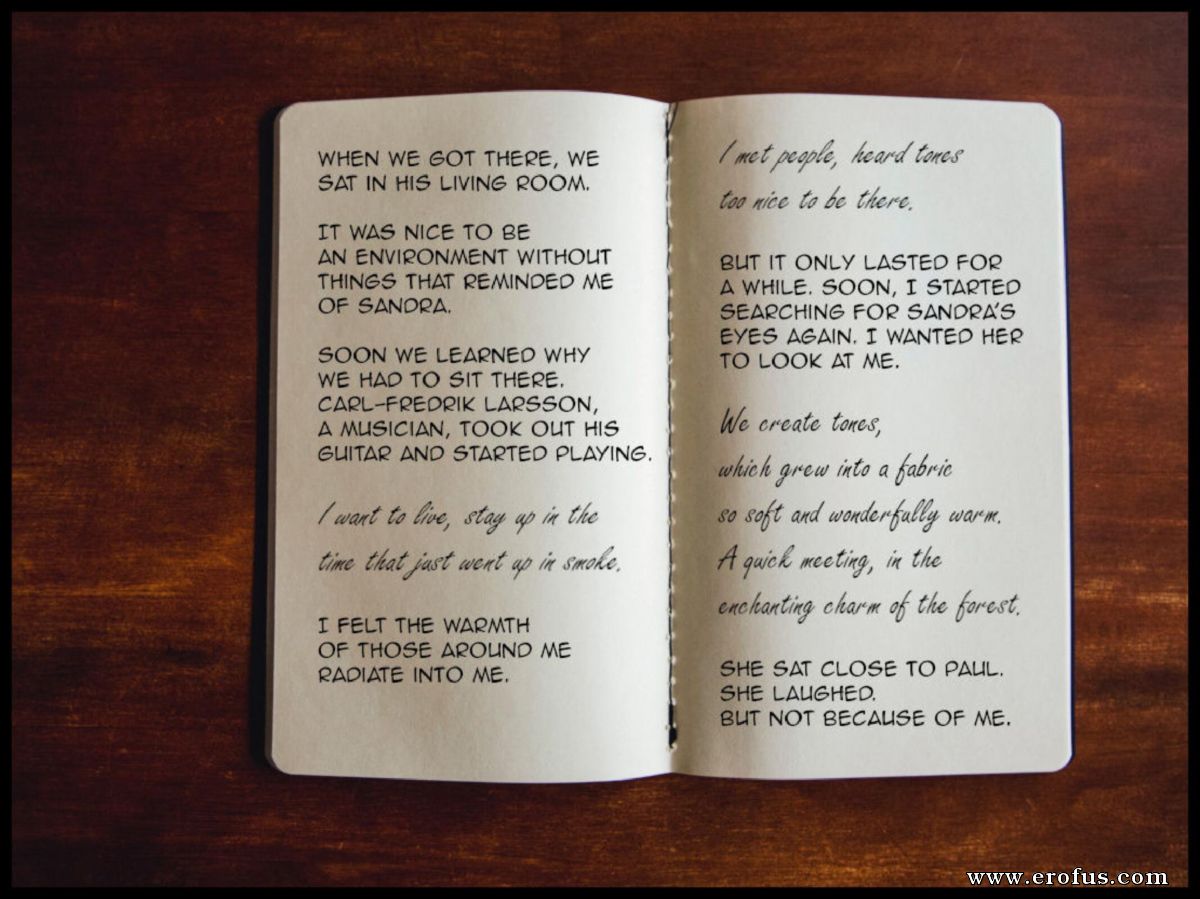 WHEN WE GOT THERE, WE
SAT IN HIS LIVING ROOM.
IT WAS NICE TO BE
AN ENVIRONMENT WITHOUT
THINGS THAT REMINDED ME
OF SANDRA.
SOON WE LEARNED WHY
WE HAD TO SIT THERE.
CARL-FREDRIK LARSSON,
A MUSICIAN, TOOK OUT HIS
GUITAR AND STARTED PLAYING.
I want to live, stay up in the
time that just went up in smoke.
I FELT THE WARMTH
OF THOSE AROUND ME
RADIATE INTO ME.
I met people, heard tones
too nice to be there.
BUT IT ONLY LASTED FOR
A WHILE. SOON, I STARTED
SEARCHING FOR SANDRA'S
EYES AGAIN. I WANTED HER
TO LOOK AT ME.
We create tones,
which grew into a fabric
so soft and wonderfully warm.
A quick meeting, in the
enchanting charm of the forest.
SHE SAT CLOSE TO PAUL.
SHE LAUGHED.
BUT NOT BECAUSE OF ME.
www.erofus.com